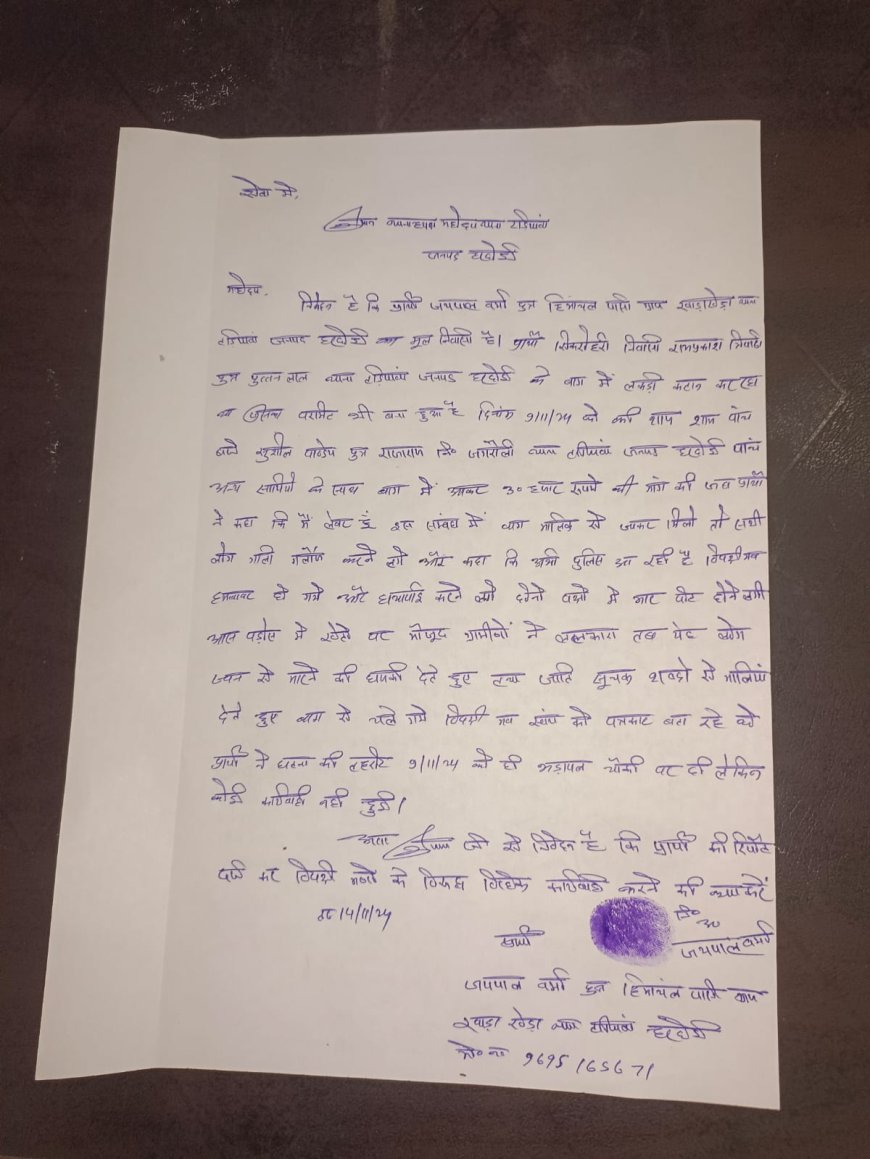 सेवा में,
श्रीमान थानाध्यक्ष महोदय थाना टडियावां
जनपद हरदोई
महोदय,
निवेदन है कि प्रार्थी जयपाल वर्मा पुत्र हिमांचल पासी ग्राम खाडाखेड़ा थाना
टडियावां जनपद हरदोई का मूल निवासी है। प्रार्थी सिकरोहरी निवासी रामप्रकाश त्रिवेदी
पुत्र पुत्तन लाल थाना टडियावां जनपद हरदोई के बाग में लकड़ी कटान कर रहा
था जिसका परमिट भी बना हुआ है दिनांक 9/11/24 को की शाम पांच
बजे सुशील पाण्डेय पुत्र राजाराम नि० जगरौली थाना टडियावां जनपद हरदोई पांच
अन्य साथियों के साथ बाग में आकर 30 हजार रुपये की मांग की जब प्रार्थी
ने कहा कि मैं लेबर हूं इस संबंध में बाग मालिक से जाकर मिलो तो सभी
लोग गाली गलौज करने लगे और कहा कि अभी पुलिस आ रही है विपक्षीगण
हमलावर हो गये और हाथापाई करने लगे दोनो पक्षो मे मार पीट होने लगी
आस पड़ोस मे खेतो पर मौजूद ग्रामीणों ने ललकारा तब यह लोग
जान से मारने की धमकी देते हुए तथा जाति सूचक शब्दो से गालियां
देते हुए बाग से चले गये विपक्षी गण स्वंय को पत्रकार बता रहे थे
प्रार्थी ने घटना की तहरीर 9/11/24 को ही भड़ायल चौकी पर दी लेकिन
कोई कार्यवाही नही हुई।
अतः श्रीमान जी से निवेदन है कि प्रार्थी की रिपोर्ट
दर्ज कर विपक्षी गणो के विरुद्ध विधिक कार्यवाही करने की कृपा करें
14/11/24
नि० अ०
प्रार्थी
जयपाल वर्मा
जयपाल वर्मा पुत्र हिमांचल पासी ग्राम
खाड़ा खेड़ा थाना टडियावां हरदोई
मो० न० 9695165671